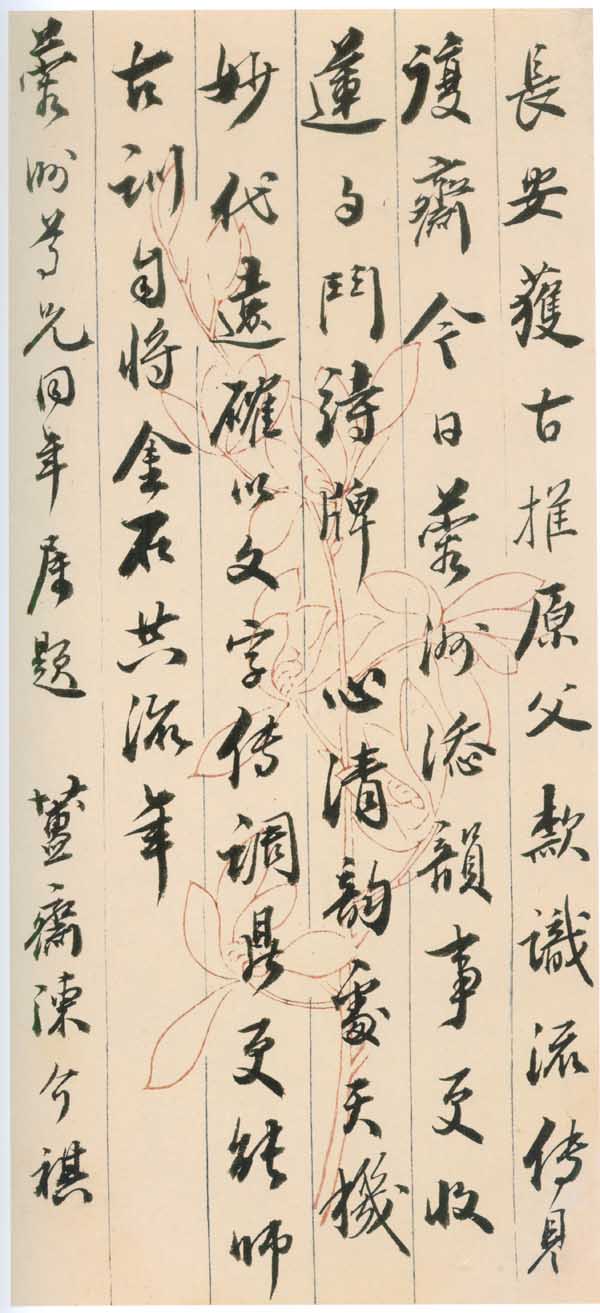 長安獲古推原父款識流傳見
護齋今日蓉洲添韻事更收
蓮勺鬥詩牌 心清韵處天機
妙代遠確以文字傳調鼎更能師
古訓自将金石共流年
蓉洲尊兄同年属題 簠齋陳介祺